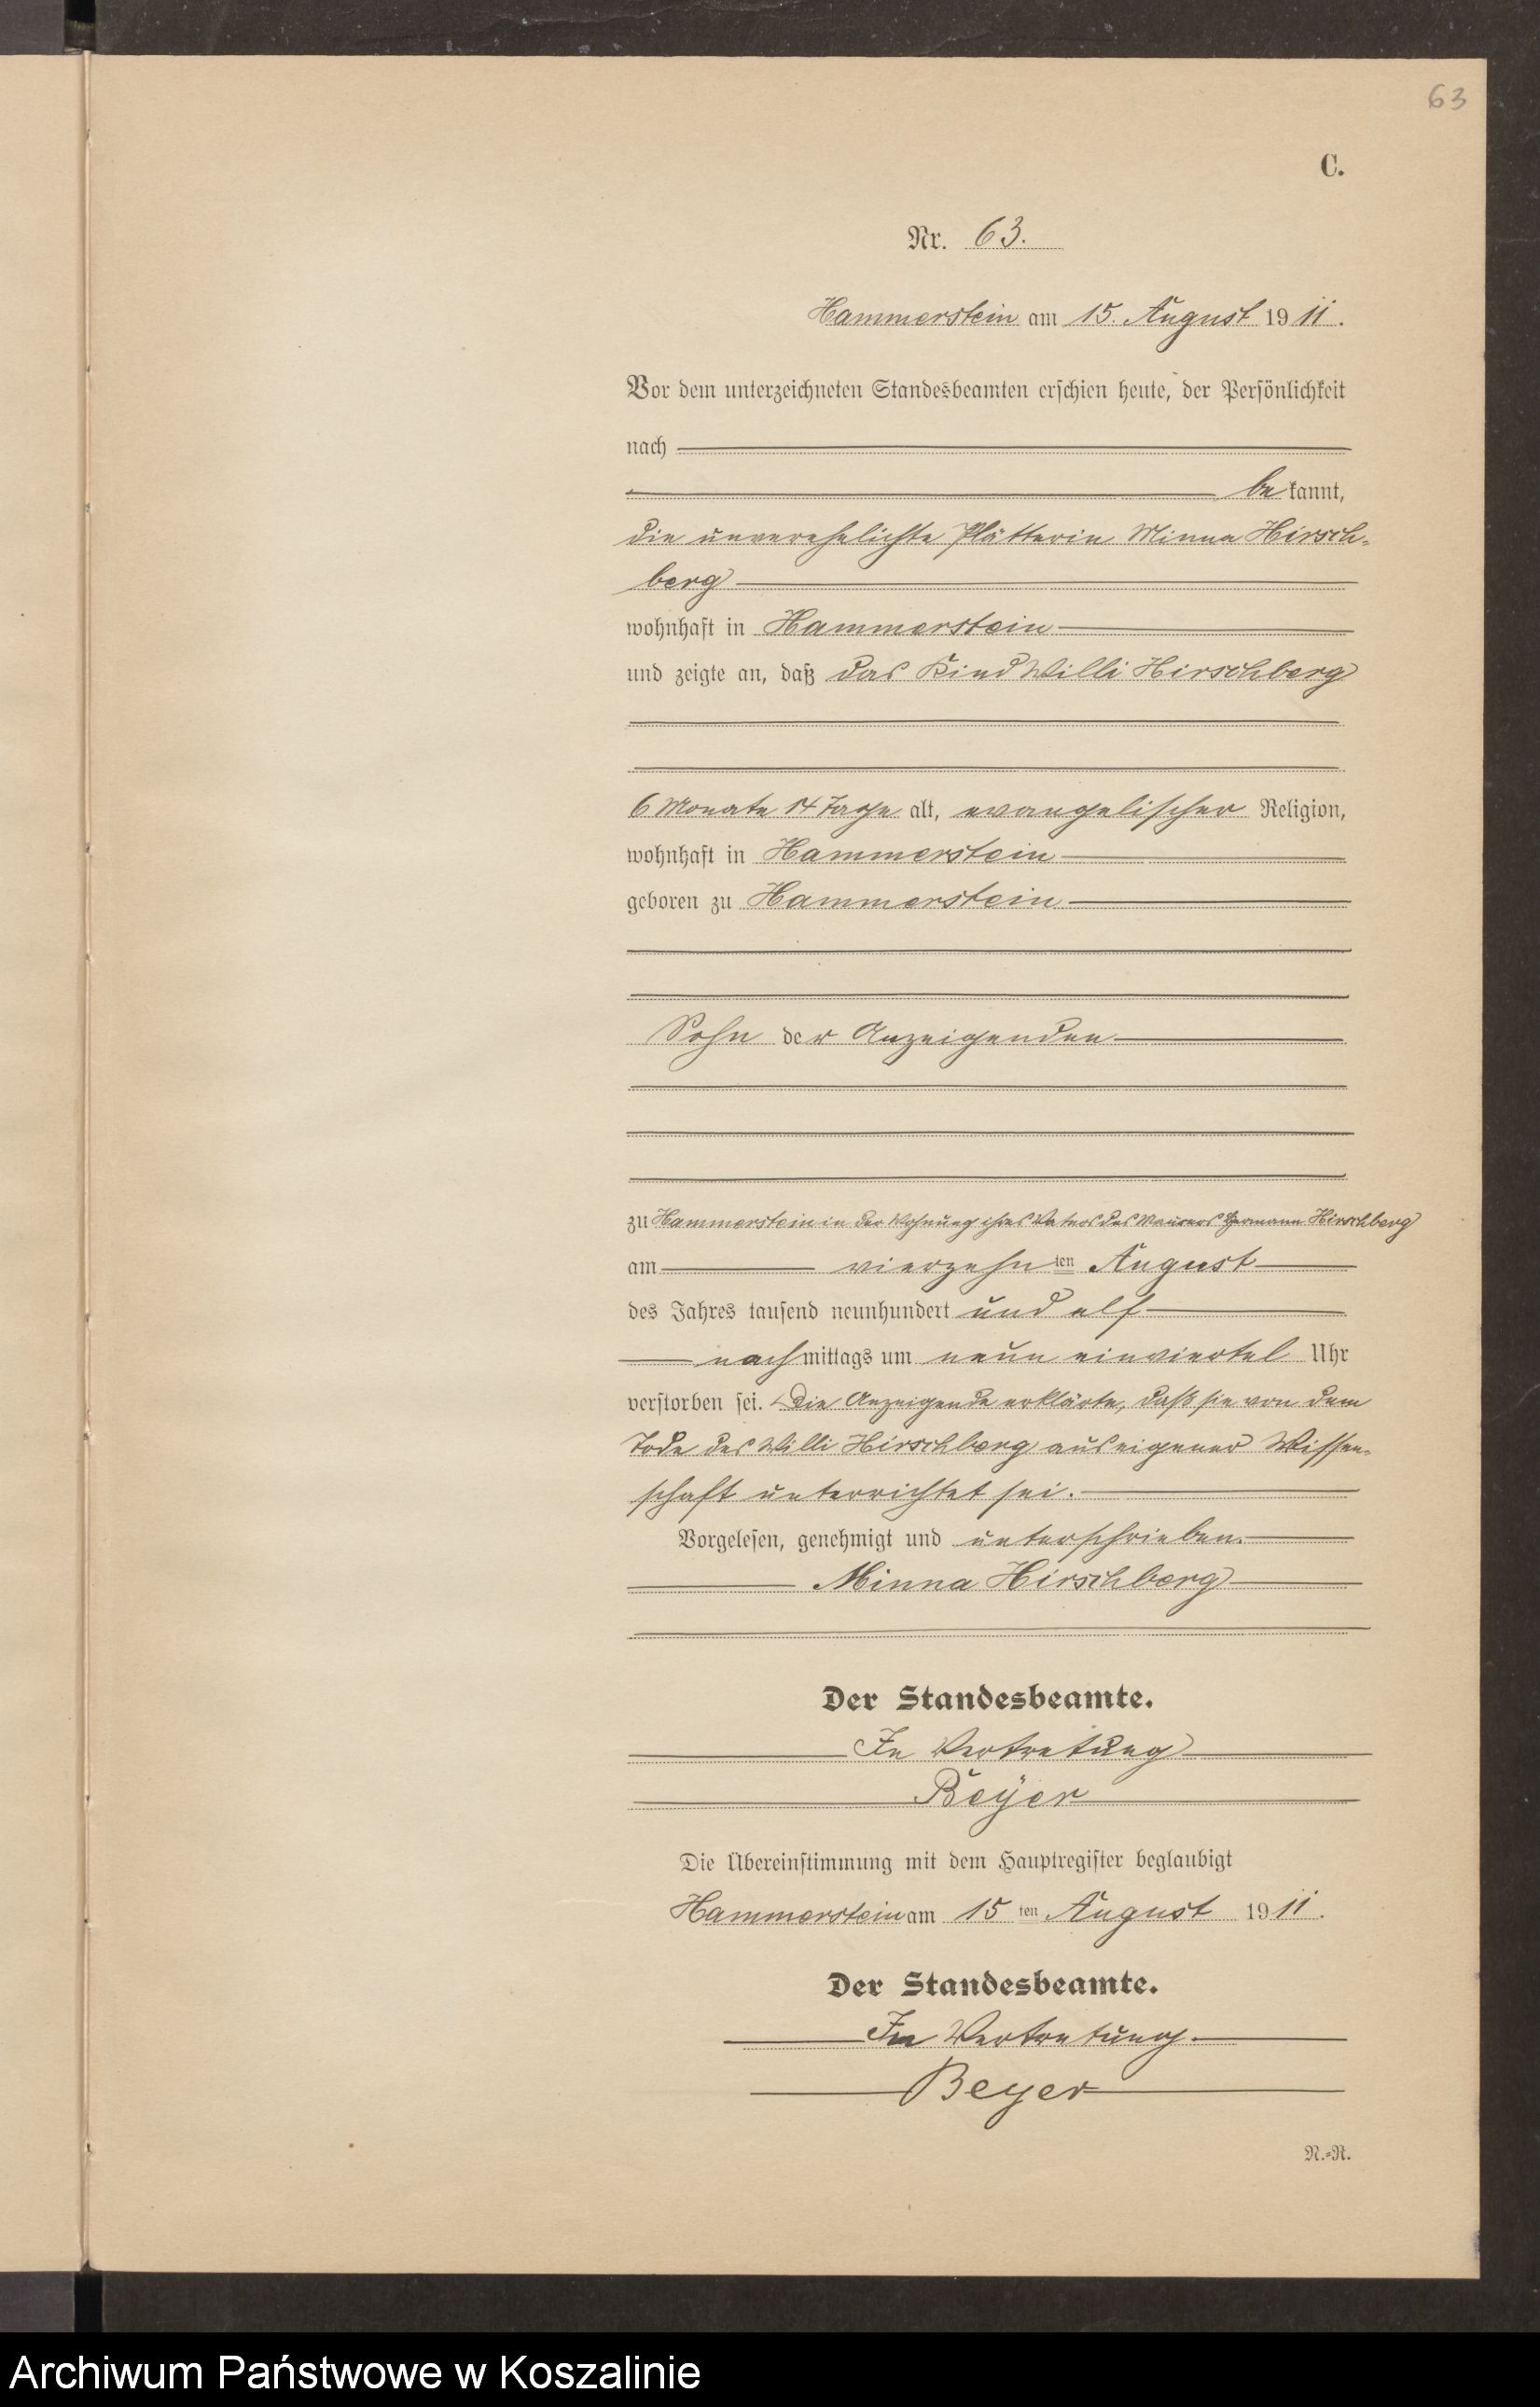 63
C.
Nr. 63.
Hammerstein am 15. August 1911.
Vor dem unterzeichneten Standesbeamten erschien heute, der Persönlichkeit
nach
bekannt,
die unverehelichte Plätterin Minna Hirsch-
berg
wohnhaft in Hammerstein
und zeigte an, daß das Kind Willi Hirschberg
6 Monate 14 Tage alt, evangelischer Religion,
wohnhaft in Hammerstein
geboren zu Hammerstein
Sohn der Anzeigenden
zu Hammerstein in der Wohnung ihres Vaters des Maurers Hermann Hirschberg
am vierzehnten August
des Jahres tausend neunhundert und elf
nachmittags um neun einviertel Uhr
verstorben sei. Die Anzeigende erklärte, daß sie von dem
Tode des Willi Hirschberg aus eigener Wissen-
schaft unterrichtet sei.
Vorgelesen, genehmigt und unterschrieben.
Minna Hirschberg
Der Standesbeamte.
In Vertretung
Beyer
Die Übereinstimmung mit dem Hauptregister beglaubigt
Hammerstein am 15ten August 1911.
Der Standesbeamte.
In Vertretung.
Beyer
N.-R.
Archiwum Państwowe w Koszalinie